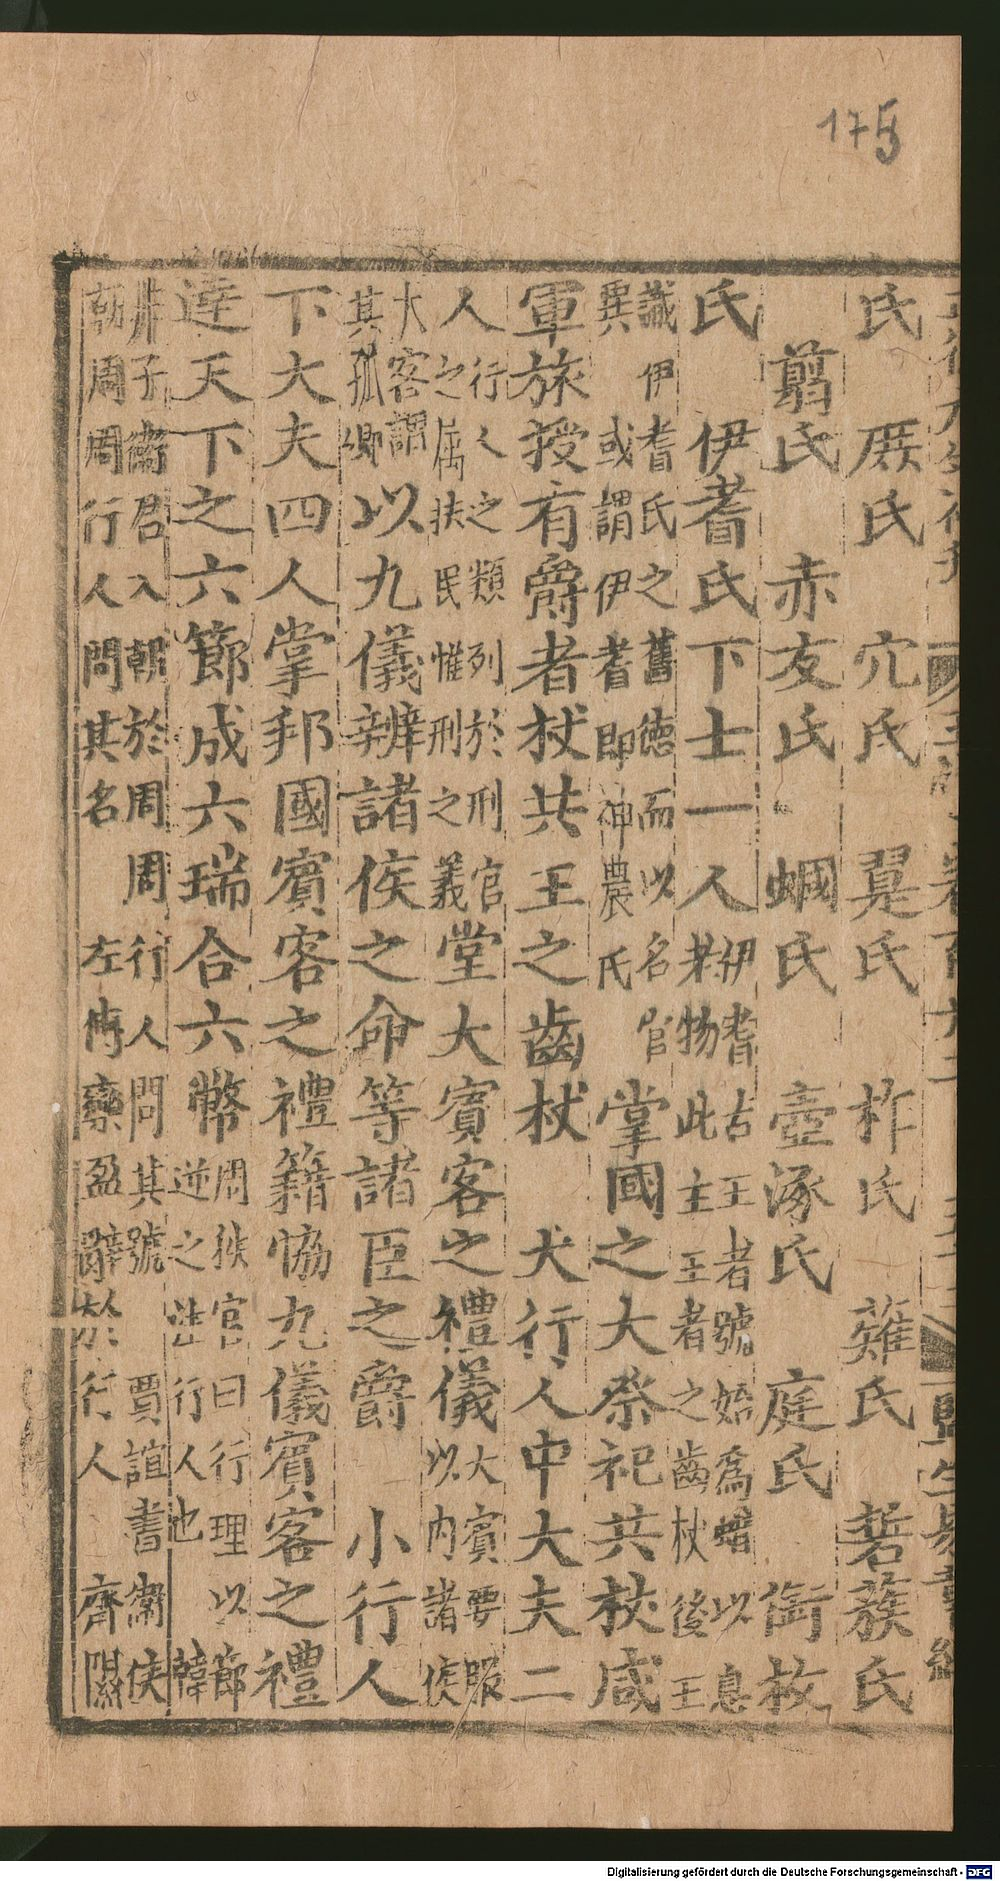 175
氏　厥氏　穴氏　翨氏　柞氏　薙氏　硩蔟氏
翦氏　赤友氏　蟈氏　壺涿氏　庭氏　銜枚
氏　伊耆氏下士一人
伊耆古王者號始為蜡以息
老物此主王者之齒杖後王
識伊耆氏之舊德而以名官
異或謂伊耆即神農氏
掌國之大祭祀共杖咸
軍旅授有爵者杖共王之齒杖　大行人中大夫二
人
行人之類列於刑官
之屬扶民惟刑之義
堂大賓客之禮儀
大賓要服
以內諸侯
大客謂
其孤卿
以九儀辨諸侯之命等諸臣之爵　小行人
下大夫四人掌邦國賓客之禮籍協九儀賓客之禮
達天下之六節成六瑞合六幣
周秩官曰行理以節
逆之　行人也　韓
非子衞君入朝於周周行人問其號　賈誼書衞侯
朝周周行人問其名　左傳欒盈辭於行人　齊
Digitalisierung gefördert durch die Deutsche Forschungsgemeinschaft - DFG